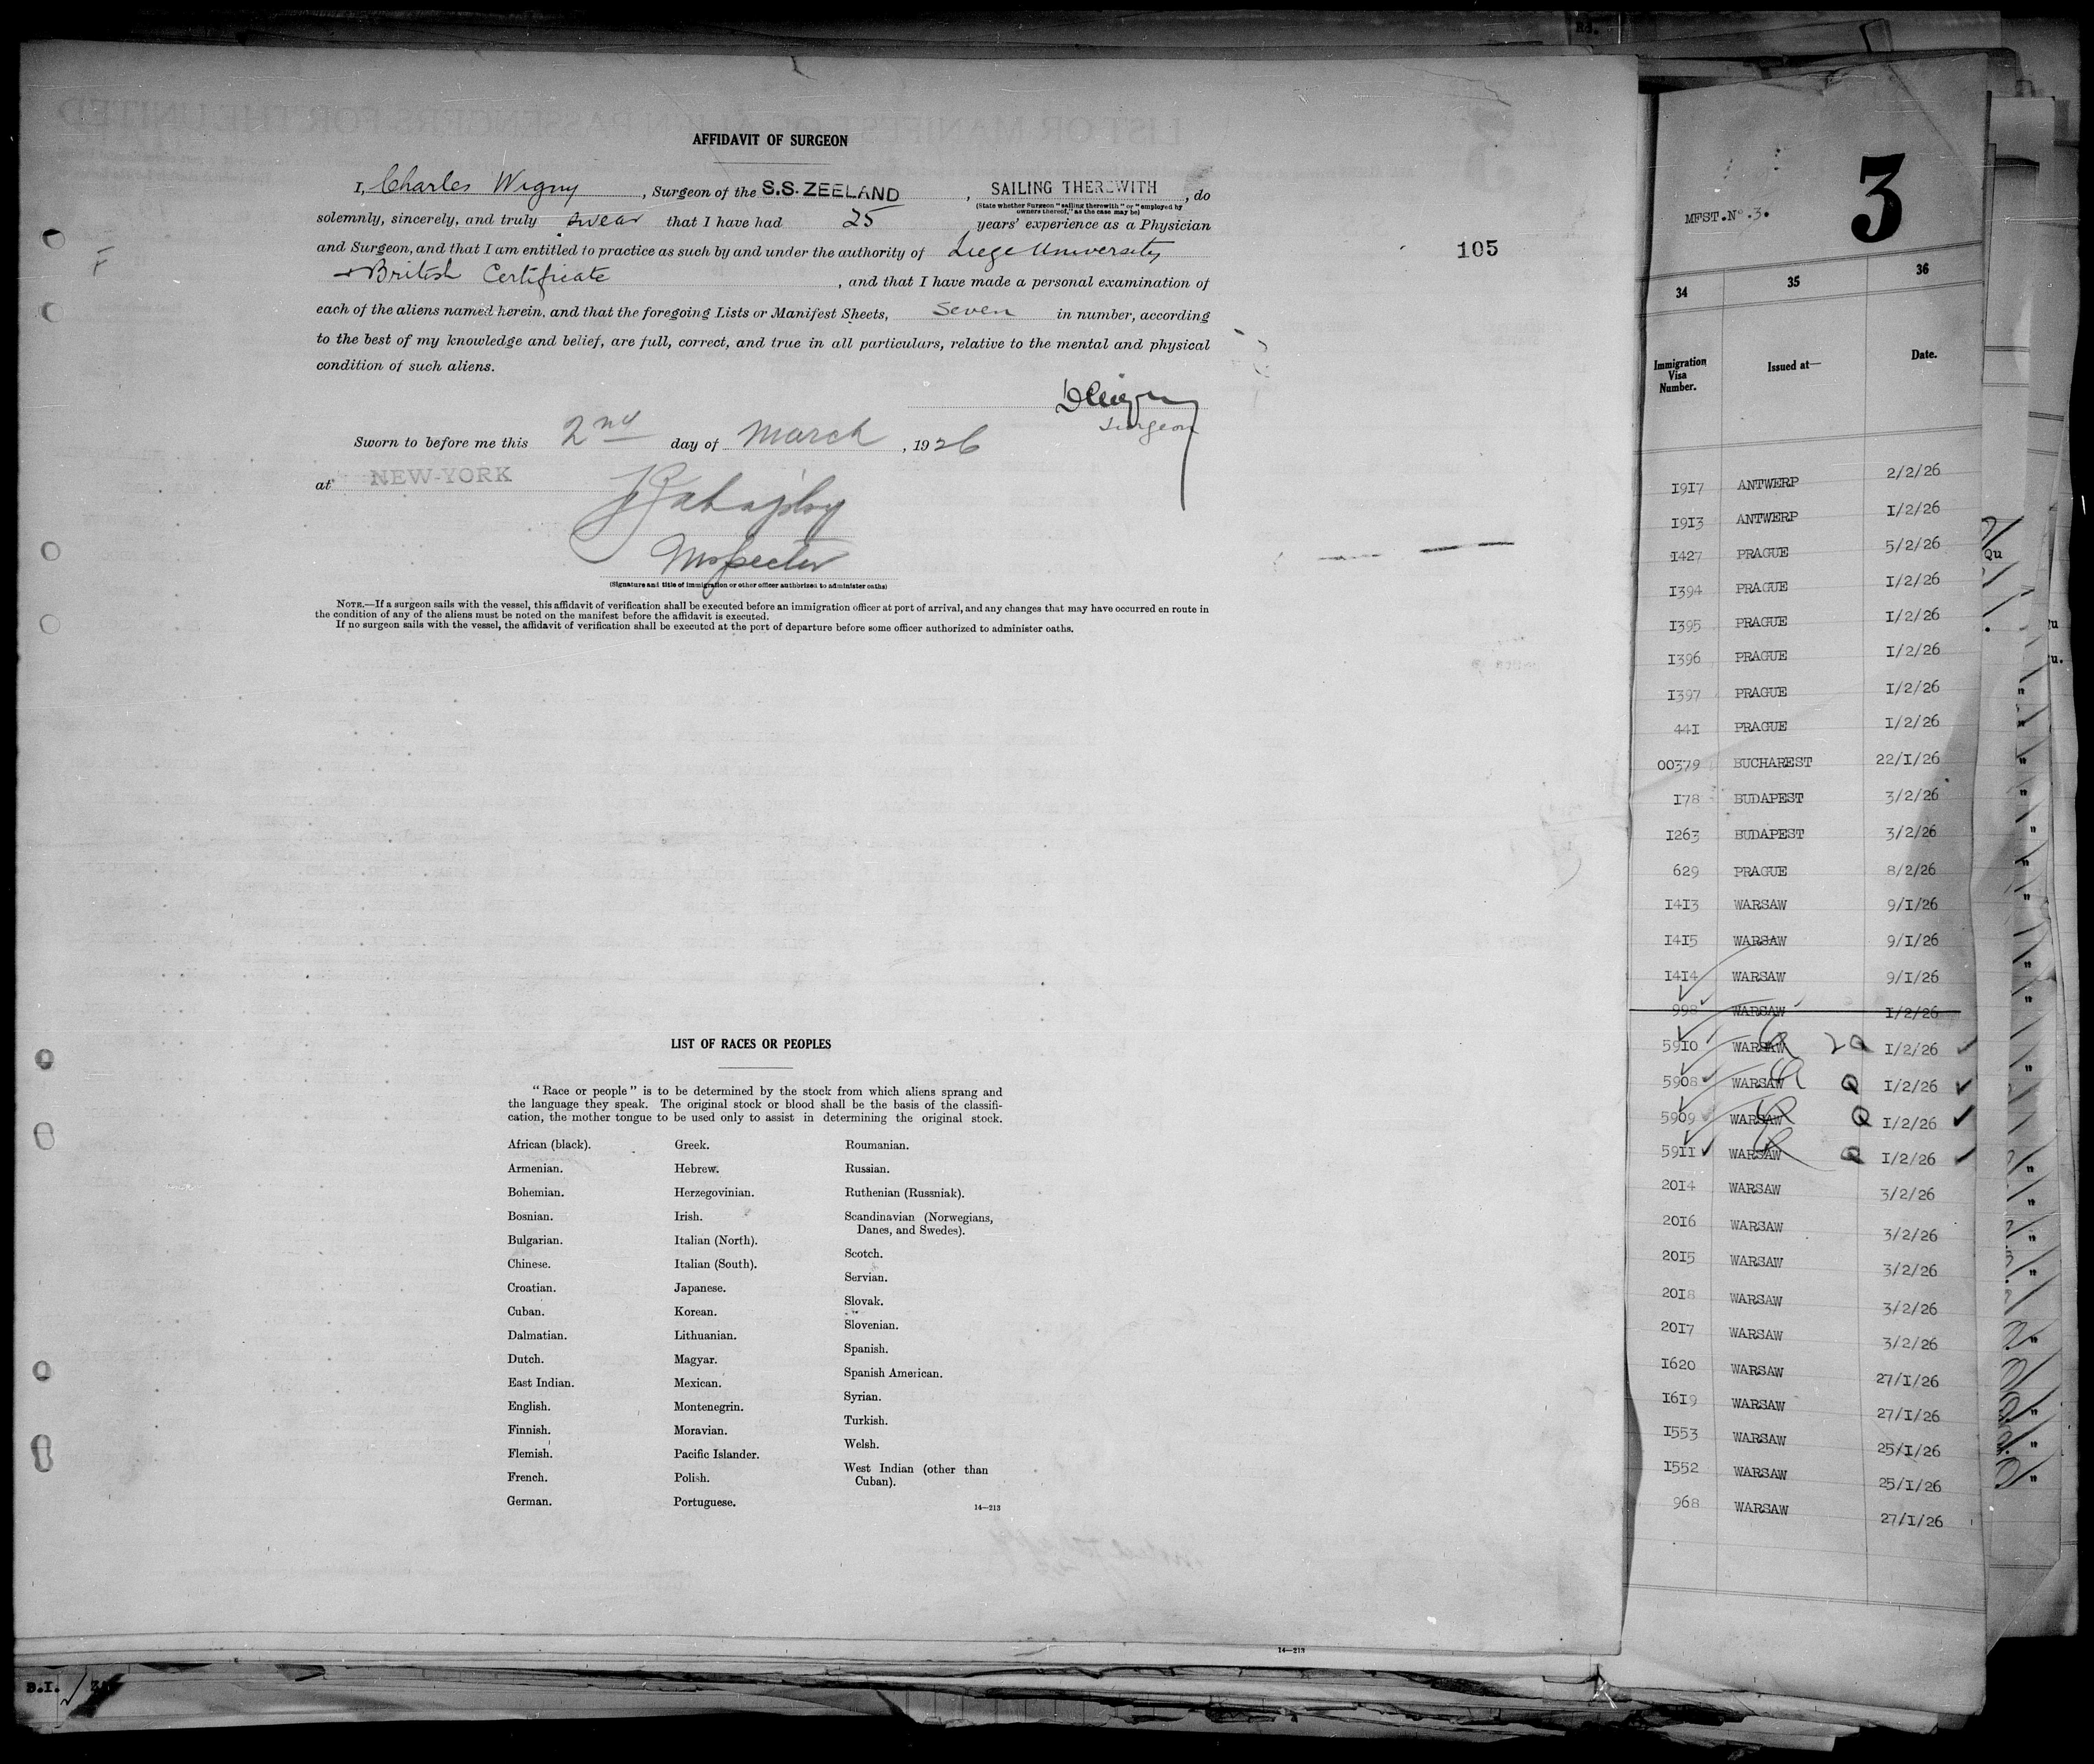 AFFIDAVIT OF SURGEON
I, Charles Wigny, Surgeon of the S.S. ZEELAND, SAILING THEREWITH, do
(State whether Surgeon "sailing therewith" or "employed by
owners thereof," as the case may be)
solemnly, sincerely, and truly swear that I have had 25 years' experience as a Physician
and Surgeon, and that I am entitled to practice as such by and under the authority of Liege University
+ British Certificate, and that I have made a personal examination of
each of the aliens named herein, and that the foregoing Lists or Manifest Sheets, Seven in number, according
to the best of my knowledge and belief, are full, correct, and true in all particulars, relative to the mental and physical
condition of such aliens.
Surgeon
Sworn to before me this 2nd day of March, 1926
at NEW-YORK
Inspector
(Signature and title of immigration or other officer authorized to administer oaths)
NOTE.—If a surgeon sails with the vessel, this affidavit of verification shall be executed before an immigration officer at port of arrival, and any changes that may have occurred en route in
the condition of any of the aliens must be noted on the manifest before the affidavit is executed.
If no surgeon sails with the vessel, the affidavit of verification shall be executed at the port of departure before some officer authorized to administer oaths.
105
LIST OF RACES OR PEOPLES
"Race or people" is to be determined by the stock from which aliens sprang and
the language they speak. The original stock or blood shall be the basis of the classifi-
cation, the mother tongue to be used only to assist in determining the original stock.
African (black).
Armenian.
Bohemian.
Bosnian.
Bulgarian.
Chinese.
Croatian.
Cuban.
Dalmatian.
Dutch.
East Indian.
English.
Finnish.
Flemish.
French.
German.
Greek.
Hebrew.
Herzegovinian.
Irish.
Italian (North).
Italian (South).
Japanese.
Korean.
Lithuanian.
Magyar.
Mexican.
Montenegrin.
Moravian.
Pacific Islander.
Polish.
Portuguese.
Roumanian.
Russian.
Ruthenian (Russniak).
Scandinavian (Norwegians,
Danes, and Swedes).
Scotch.
Servian.
Slovak.
Slovenian.
Spanish.
Spanish American.
Syrian.
Turkish.
Welsh.
West Indian (other than
Cuban).
14—213
14—213
B.I.
MFST.No.3.
3
34 35 36
Immigration Visa Number. Issued at— Date.
1917 ANTWERP 2/2/26
1913 ANTWERP I/2/26
1427 PRAGUE 5/2/26
1394 PRAGUE I/2/26
1395 PRAGUE I/2/26
1396 PRAGUE I/2/26
1397 PRAGUE I/2/26
441 PRAGUE I/2/26
00379 BUCHAREST 22/I/26
178 BUDAPEST 3/2/26
1263 BUDAPEST 3/2/26
629 PRAGUE 8/2/26
1413 WARSAW 9/I/26
1415 WARSAW 9/I/26
1414 WARSAW 9/I/26
998 WARSAW I/2/26
5910 WARSAW 2Q I/2/26
5908 WARSAW Q I/2/26
5909 WARSAW Q I/2/26
5911 WARSAW Q I/2/26
2014 WARSAW 3/2/26
2016 WARSAW 3/2/26
2015 WARSAW 3/2/26
2018 WARSAW 3/2/26
2017 WARSAW 3/2/26
1620 WARSAW 27/I/26
1619 WARSAW 27/I/26
1553 WARSAW 25/I/26
1552 WARSAW 25/I/26
968 WARSAW 27/I/26
Qu